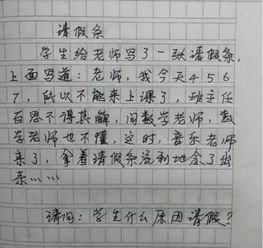 请假条
学生给老师写了一张请假条,
上面写道:老师,我今天456
7,所以不能来上课了,班主任
百思不得其解,问数学老师,数
学老师也不懂,这时,音乐老师
来了,拿着请假条流利地念了出
来……
请问:学生什么原因请假?